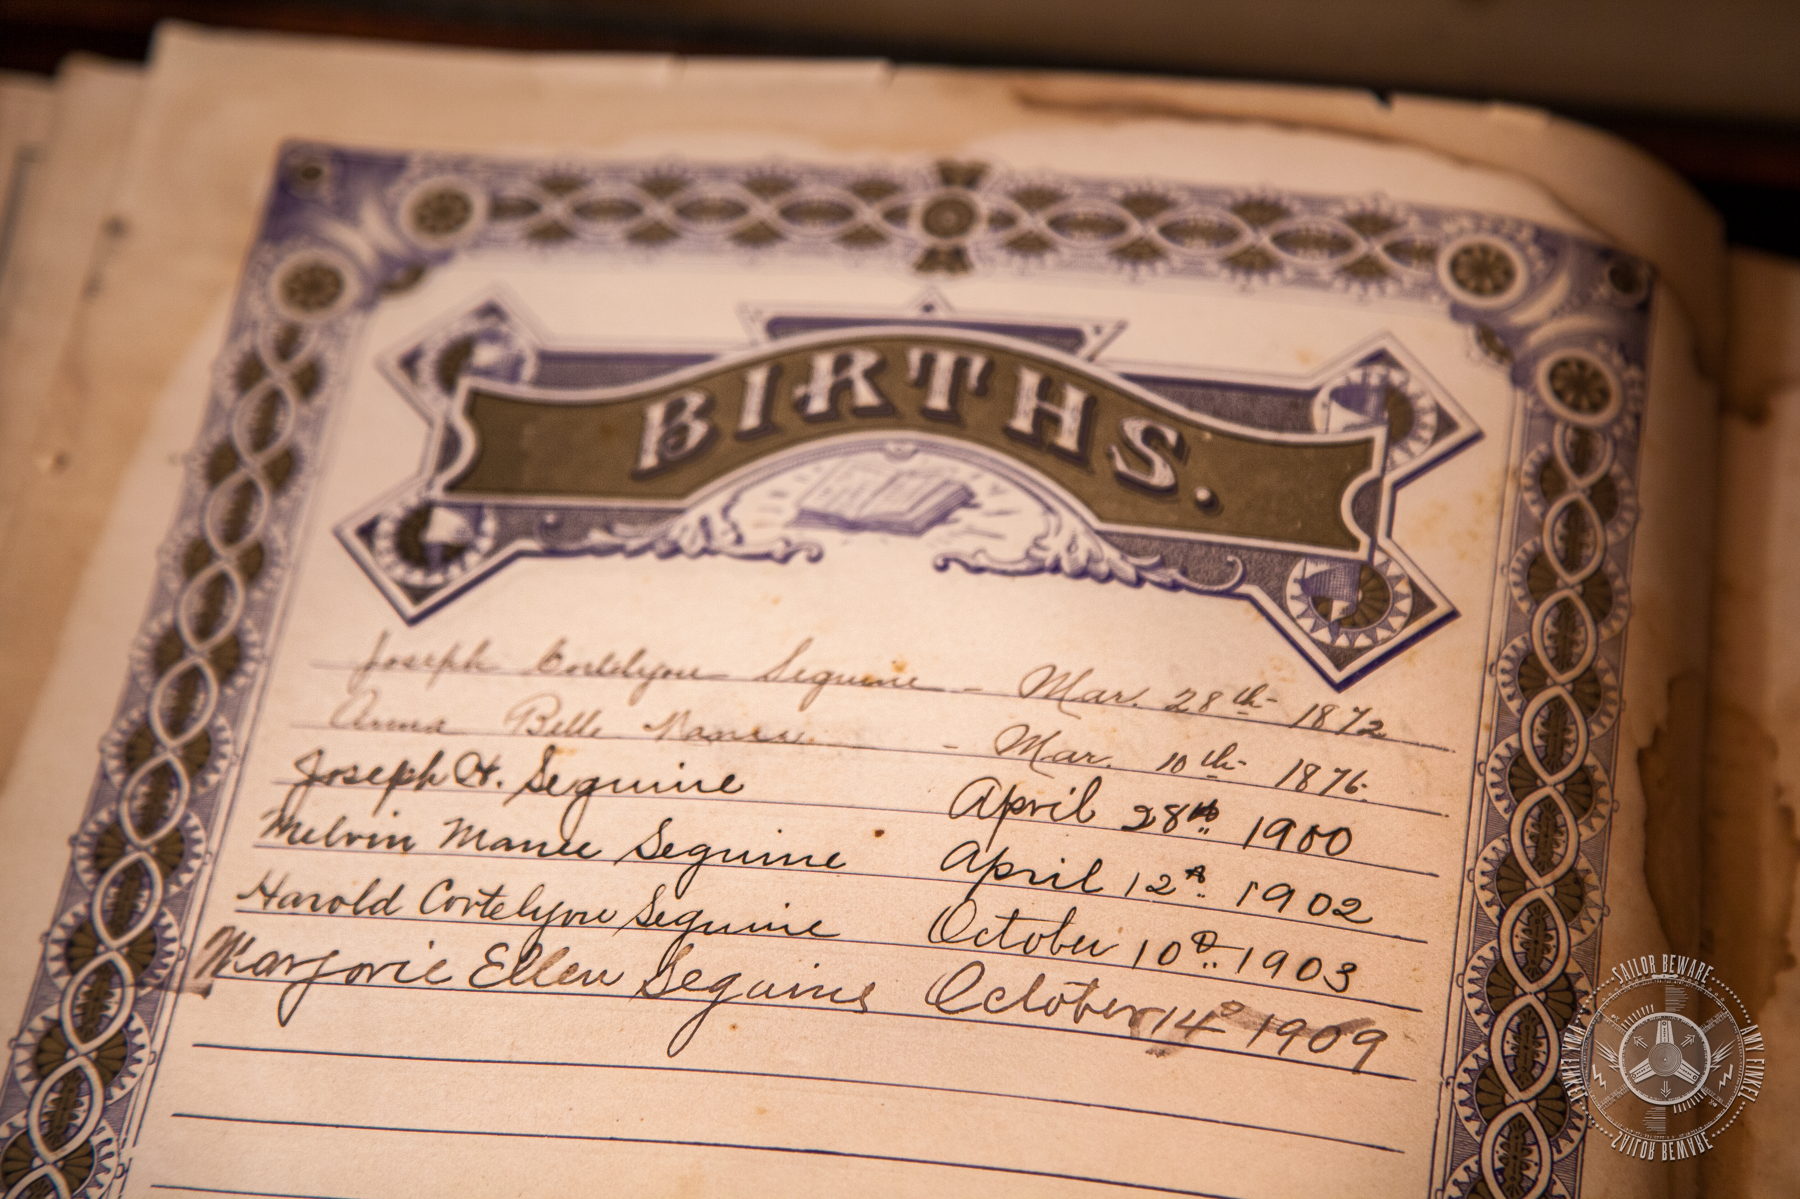 BIRTHS.
Joseph Cortelyou Seguine - Mar. 28th 1872
Anna Belle Manee - Mar. 10th 1876.
Joseph H. Seguine April 28th 1900
Melvin Manee Seguine April 12th 1902
Harold Cortelyou Seguine October 10th 1903
Marjorie Ellen Seguine October 14th 1909
SAILOR BEWARE
AMY FINKEL
SAILOR BEWARE
AMY FINKEL